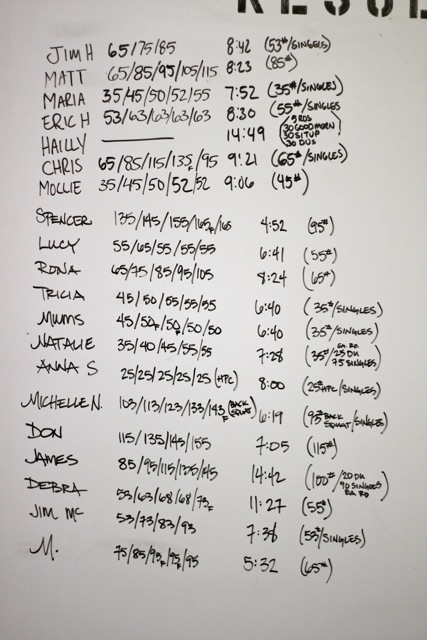 RESUL
JIM H 65/75/85 8:42 (53#/SINGLES)
MATT 65/85/95/105/115 8:23 (85#)
MARIA 35/45/50/52/55 7:52 (35#/SINGLES)
ERIC H 53/63/63/63/63 8:30 (55#/SINGLES
HAILLY 14:49 (5 RDS
30 GOOD MORN
30 SITUP
30 DUS)
CHRIS 65/85/115/135F/95 9:21 (65#/SINGLES)
MOLLIE 35/45/50/52/52 9:06 (45#)
SPENCER 135/145/155/165F/165 4:52 (95#)
LUCY 55/65/55/55/55 6:41 (55#)
RONA 65/75/85/95/105 8:24 (65#)
TRICIA 45/50/55/55/55 6:40 (35#/SINGLES)
MUMS 45/50F/50F/50/50 6:40 (35#/SINGLES)
NATALIE 35/40/45/55/55 7:28 (35#/25 DU
75 SINGLES
EA. RD.)
ANNA S 25/25/25/25/25 (HPC) 8:00 (25# HPC/SINGLES)
MICHELLE N. 103/113/123/133/143F (BACK SQUAT) 6:19 (93# BACK SQUAT/SINGLES)
DON 115/135/145/155 7:05 (115#)
JAMES 85/95/115/135/145 14:42 (100#/20 DU
90 SINGLES
EA RD)
DEBRA 53/63/68/68/73F 11:27 (55#)
JIM MC 53/73/83/93 7:38 (55#/SINGLES)
M. 75/85/95F/95F/95 5:32 (65#)